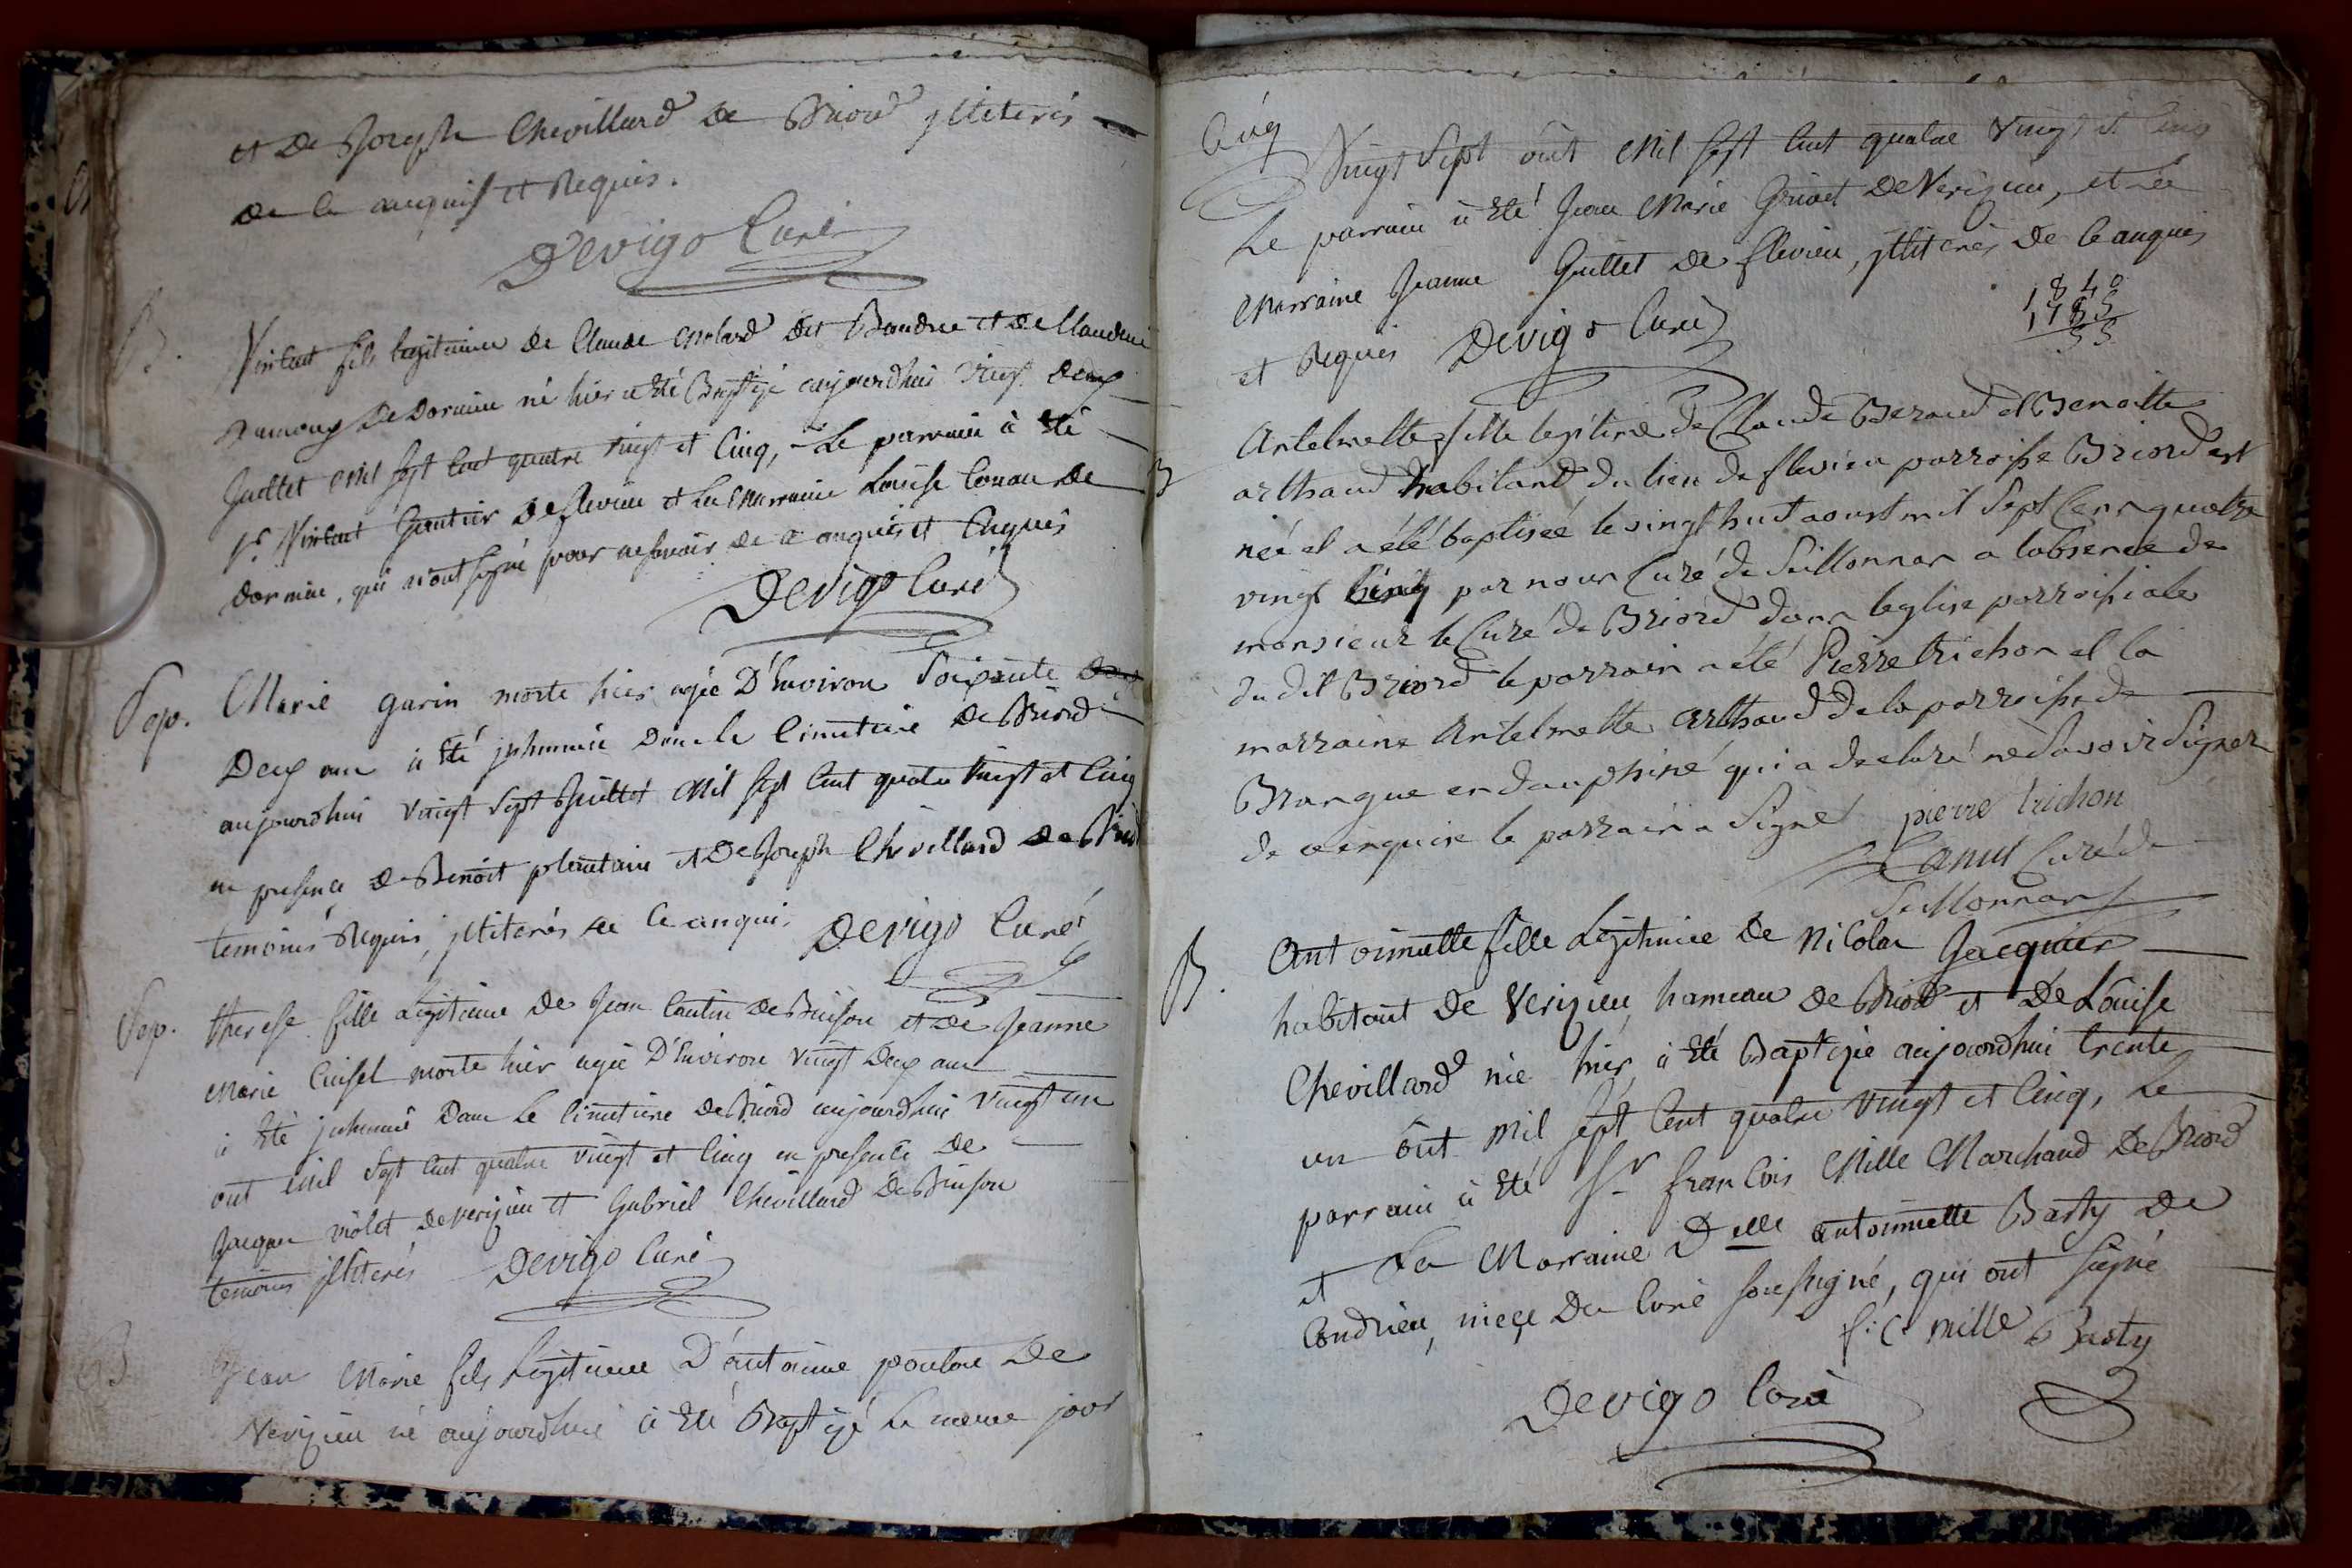 et De Joseph Chevillard de Briord jlliterés
de ce anquis et Requis.
Devigo Curé
B. Vincent fils legitime de Claude Molard dit Baudru et de Claudine
De Dornieu né hier a Eté Baptizé aujourdhui vingt deux
Juillet Mil sept Cent quatre vingt et Cinq, Le parrain à Eté
Sr. Vincent Gautier De flevieu et La Marraine Louise Conau de
Dornieu, qui n'ont signé pour ne savoir de ce anquis et Enquis
Devigo Curé
Sep. Marie garin morte hier agée D'Environ Soixante
Deux ans à Eté jnhumée Dans le Cimetiere De Briord
aujourdhui vingt sept Juillet Mil sept Cent quatre vingt et Cinq
en presence De Benoit plantain et De Joseph Chevillard De Briord
temoins Requis, jlliterés de Ce anquis Devigo Curé
Sep. therese fille Legitime De Jean Cantin De Buison et De Jeanne
Marie Cuisel morte hier agée D'Environ vingt Deux ans
à Eté jnhumée Dans Le Cimetiere De Briord aujourdhui vingt un
out Mil Sept Cent quatre vingt et Cinq en presence De
Jacques violet De verizieu et Gabriel Chevillard De Buison
temoins jlliterés Devigo Curé
B Jean Marie fils Legitime D'antoine poulne De
Verizieu né aujourdhui à Eté Baptizé Le meme jour
Vingt Sept óut Mil sept Cent quatre vingt et Cinq
Le parrain à Eté Jean Marie Grivet De Verizieu, et la
Marraine Jeanne Guillet de flevieu, jlliterés De Ce anquis
et Requis Devigo Curé
1840
1785
55
B Antelmette fille legitime de Claude Beraud et Benoitte
arthaud habitants du lieu de flevieu parroisse Briord est
neé et a été baptiseé le vingt huit aoust mil sept Cent quatre
vingt Cinq par nous Curé de Seillonnas a labsence de
monsieur le Curé de Briord dans leglise parroissiale
du dit Briord le parrain a été Pierre trichon et la
marraine Antelmette arthaud de la parroisse de
Brangue en dauphiné qui a declaré ne Savoir Signer
de ce enquise le parrain a Signé pierre trichon
Canut Curé de
Seillonnas
B. Antoinette fille Legitimée De Nicolas Jacquier
habitant de Verizieu hameau De Briord et De Louise
Chevillard née hier à Eté Baptizée aujourdhui trente
un óut mil sept Cent quatre vingt et Cinq, Le
parrain à Eté Sr. francois Mille Marchand De Briord
et La Marraine Delle antoinette Basty De
Condrieu, niece Du Curé soussigné, qui ont signé
f: C. Mille Basty
Devigo Curé